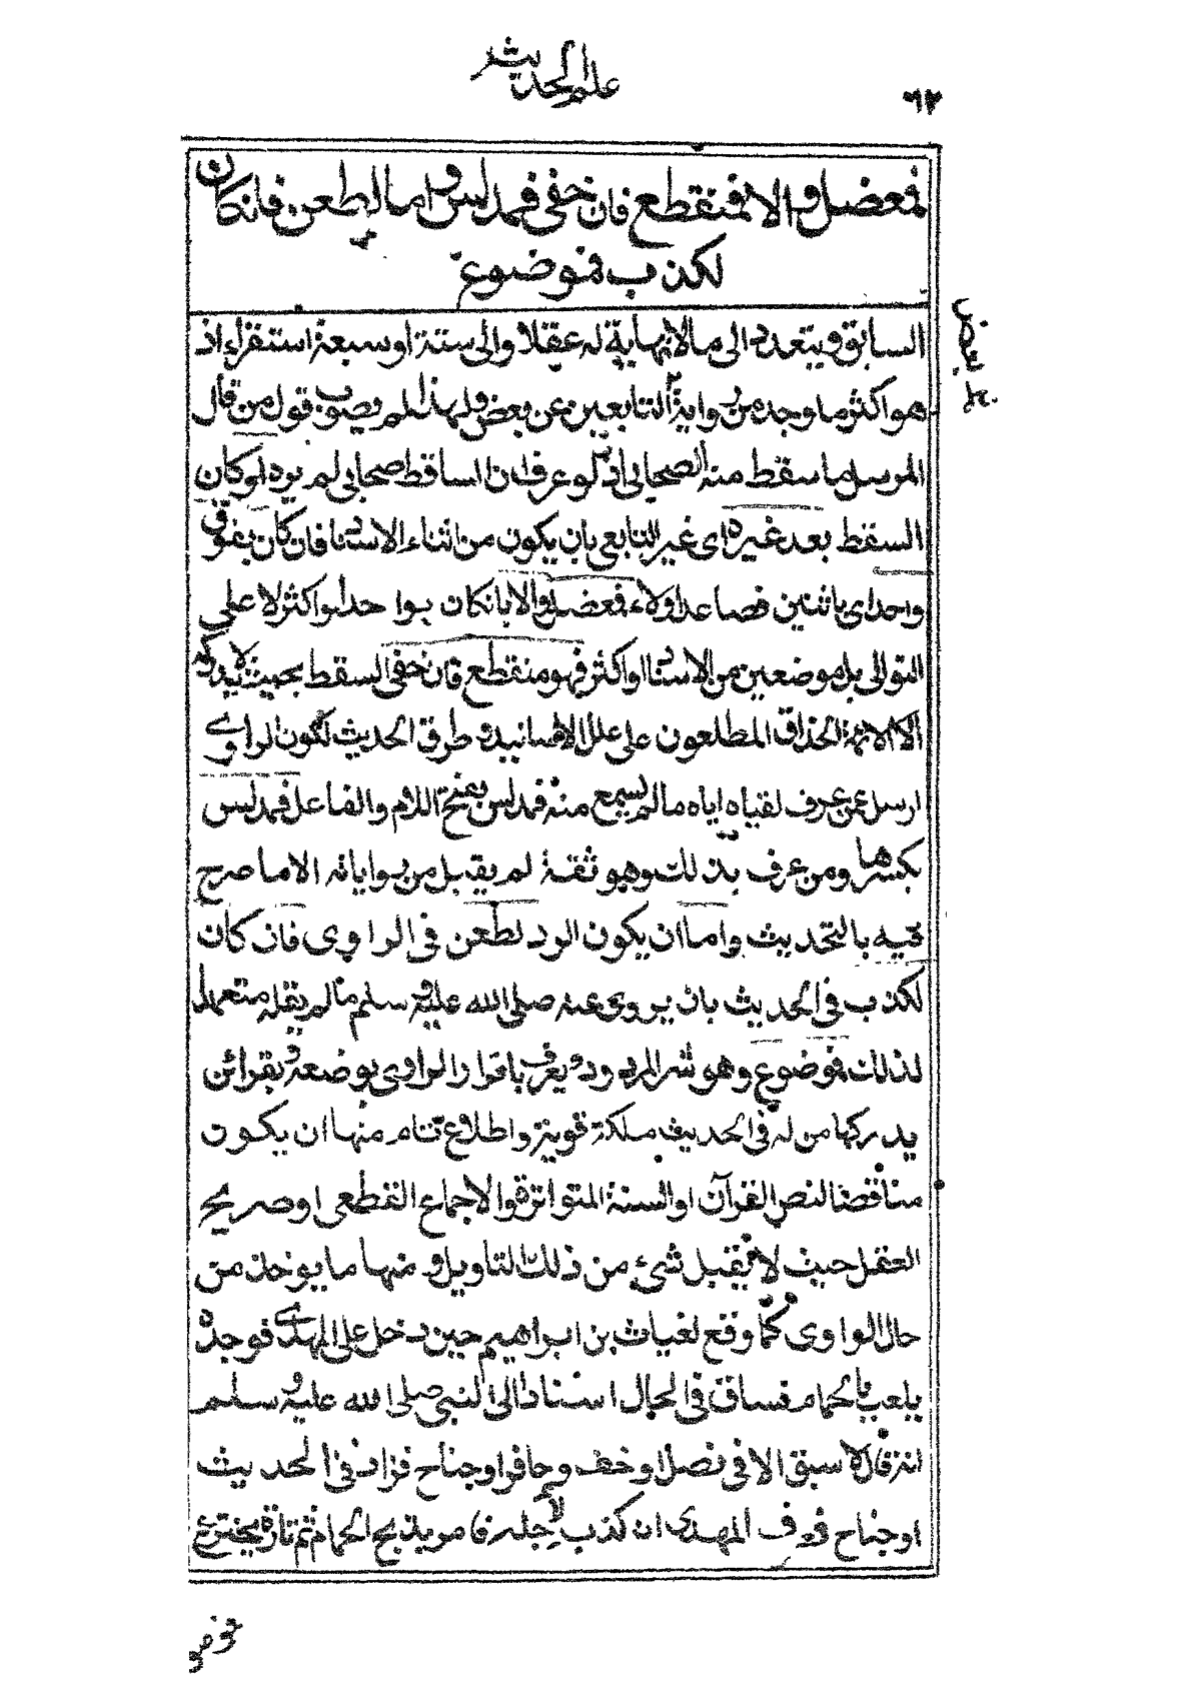 علم الحديث
٦٢
فمعضل والا فمنقطع فان خفى فمدلس واما لطعن فان كان
لكذب فموضوع
السابق ويتعدد الى ما لا نهاية له عقلا والى ستة او سبعة استقراء اذ
هو اكثر ما وجد من رواية التابعين عن بعض ولهذا لم يصوب قول من قال
المرسل ما سقط منه الصحابى اذ لو عرف ان الساقط صحابى لم يرد او كان
السقط بعد غيره اى غير التابعى بان يكون من اثناء الاسناد فان كان بفوق
واحد اى باثنين فصاعدا ولاء فمعضل والا بان كان بواحد او اكثر لا على
التوالى بل موضعين من الاسناد او اكثر فهو منقطع فان خفى السقط بحيث لا يدركه
الا الائمة الحذاق المطلعون على علل الاسانيد و طرق الحديث لكون الراوى
ارسل عمن عرف لقياه اياه ما لم يسمع منه فمدلس بفتح اللام والفاعل مدلس
بكسرها ومن عرف بذلك وهو ثقة لم يقبل من رواياته الا ما صرح
فيه بالتحديث واما ان يكون الرد لطعن فى الراوى فان كان
لكذب فى الحديث بان يروى عنه صلى الله عليه وسلم ما لم يقله متعمدا
لذلك فموضوع وهو شر المردود ويعرف باقرار الراوى بوضعه وبقرائن
يدركها من له فى الحديث ملكة قوية واطلاع تام منها ان يكون
مناقضا لنص القرآن او السنة المتواترة والاجماع القطعى او صريح
العقل حيث لا يقبل شئ من ذلك التاويل ومنها ما يوخذ من
حال الراوى كما وقع لغياث بن ابراهيم حين دخل على المهدى فوجده
يلعب بالحمام فساق فى الحال اسنادا الى النبى صلى الله عليه وسلم
انه قال لا سبق الا فى نصل او خف و حافر او جناح فزاد فى الحديث
او جناح فعرف المهدى انه كذب لاجله فامر بذبح الحمام ثم تارة يخترع